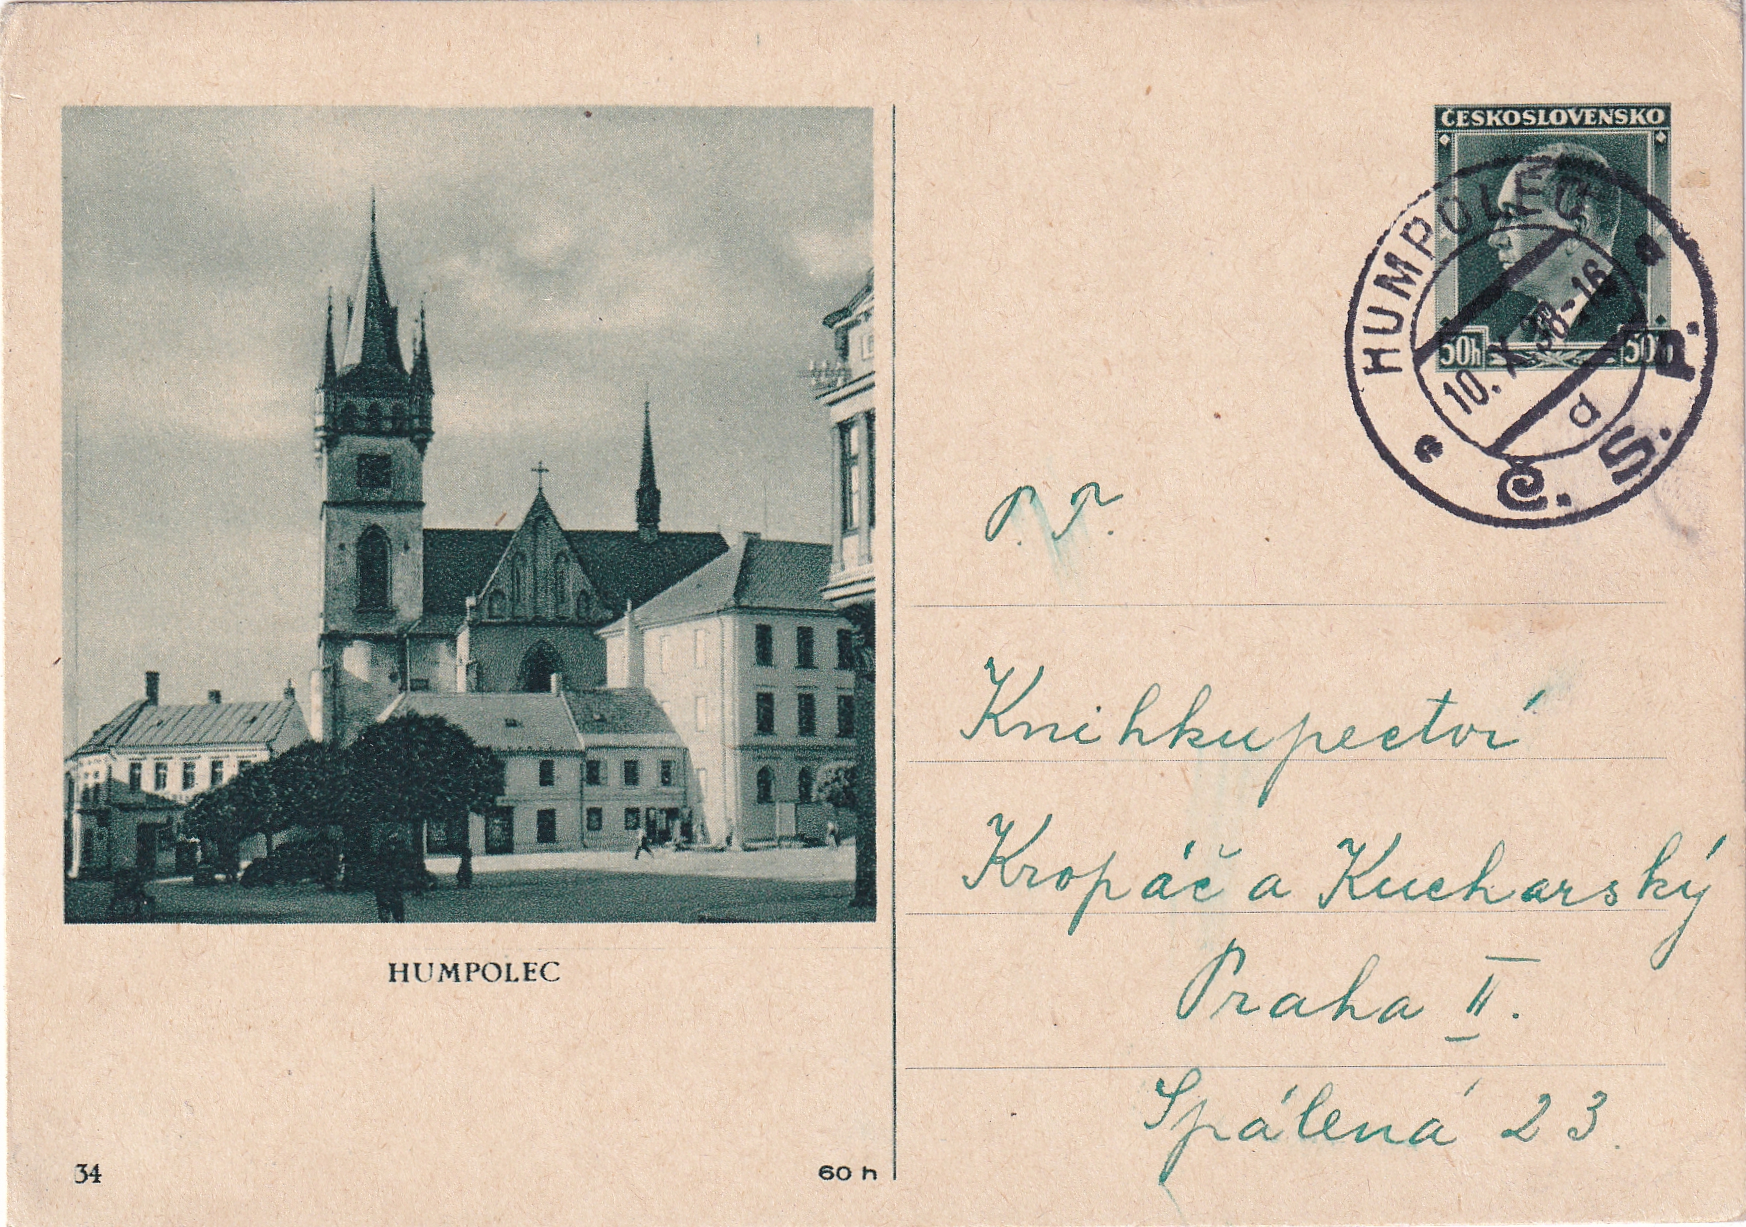 HUMPOLEC
34
60 h
ČESKOSLOVENSKO
50h 50h
HUMPOLEC
10. X. 38-16
d
Č. S. P.
P. T.
Knihkupectví
Kropáč a Kucharský
Praha II.
Spálená 23.